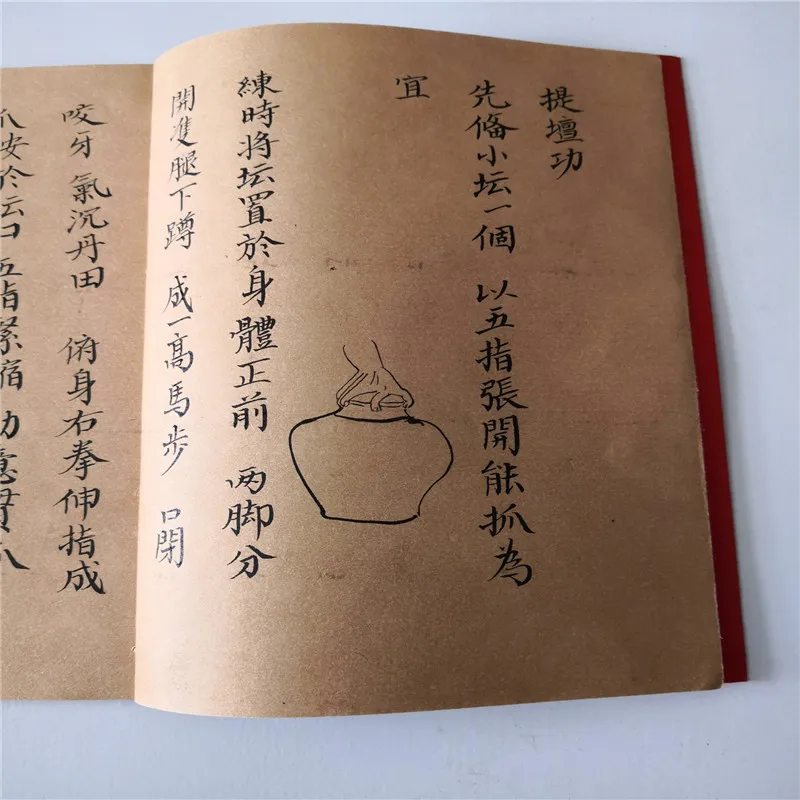 提壇功
先俻小坛一個 以五指張開能抓為
宜
練時將坛置於身體正前 两脚分
開隻腿下蹲 成一高馬步 口閉
咬牙 氣沉丹田 俯身右拳伸指成
爪安於坛口 五指緊宿